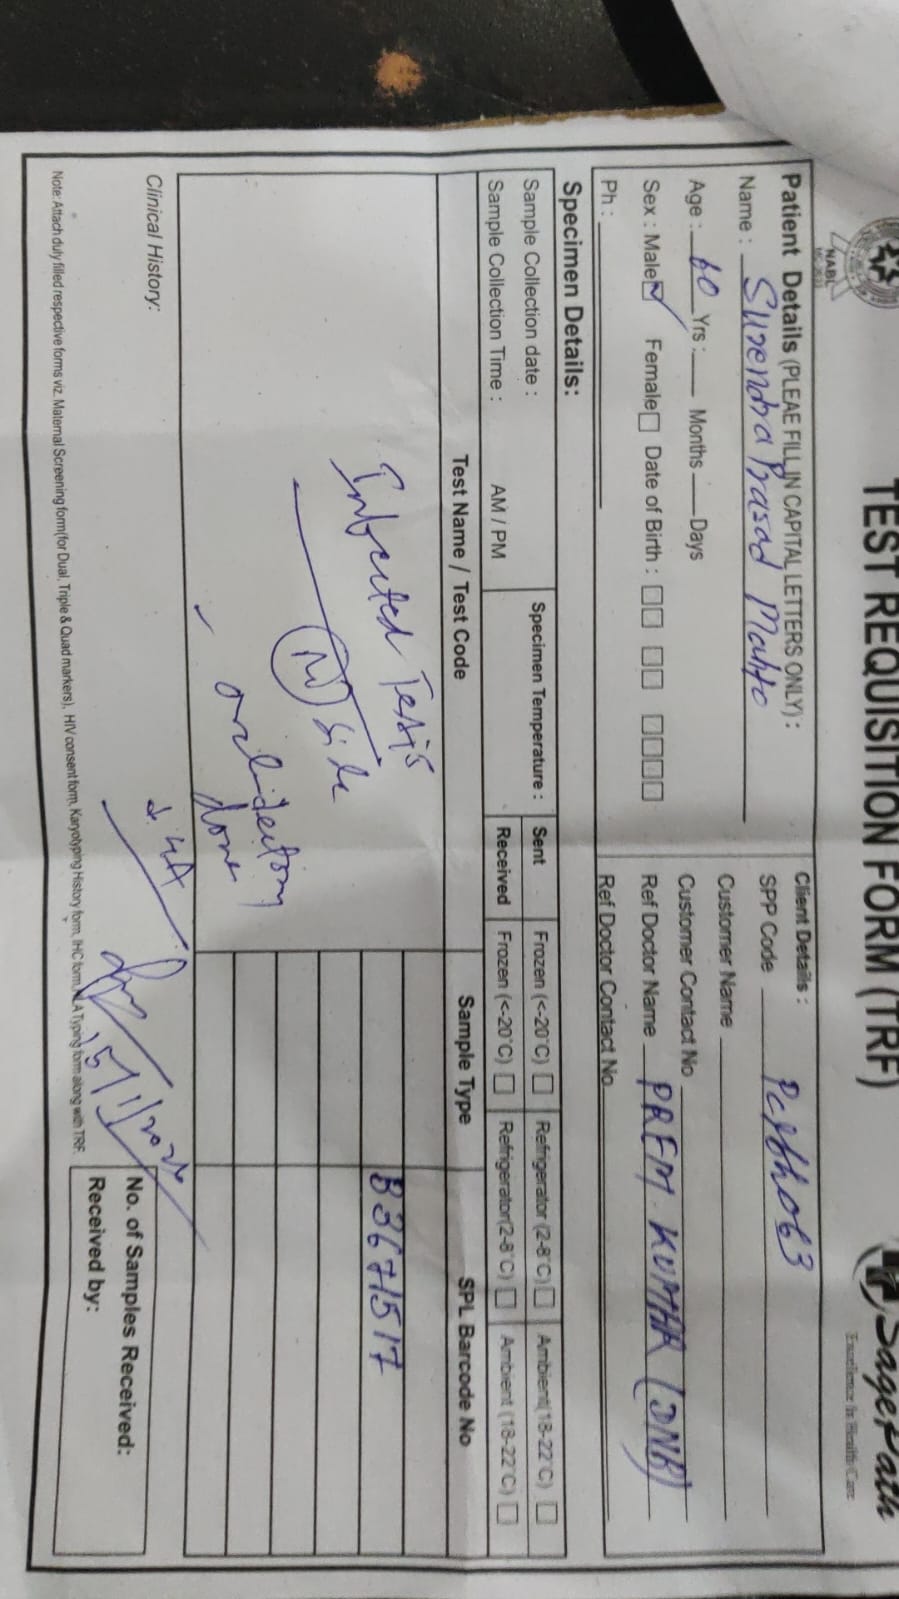 TEST REQUISITION FORM (TRF)
NABL
SagePath
Excellence In Health Care
Patient Details (PLEAE FILL IN CAPITAL LETTERS ONLY) :
Name : Surendra Prasad Mahto
Age : 60 Yrs : Months Days
Sex : Male Female Date of Birth :
Ph :
Client Details :
SPP Code
Customer Name
Customer Contact No
Ref Doctor Name PREM KUMAR (DNB)
Ref Doctor Contact No
Specimen Details:
Sample Collection date :
Sample Collection Time : AM / PM
Specimen Temperature :
Sent Frozen (<-20°C) Refrigerator (2-8°C) Ambient(18-22°C)
Received Frozen (<-20°C) Refrigerator(2-8°C) Ambient (18-22°C)
Test Name / Test Code Sample Type SPL Barcode No
Infected Testis
side
orchidectomy
done
B3671517
Clinical History:
No. of Samples Received:
Received by:
Note: Attach duly filled respective forms viz. Maternal Screening form(for Dual, Triple & Quad markers), HIV consent form, Karyotyping History form, IHC form, HLA Typing form along with TRF.